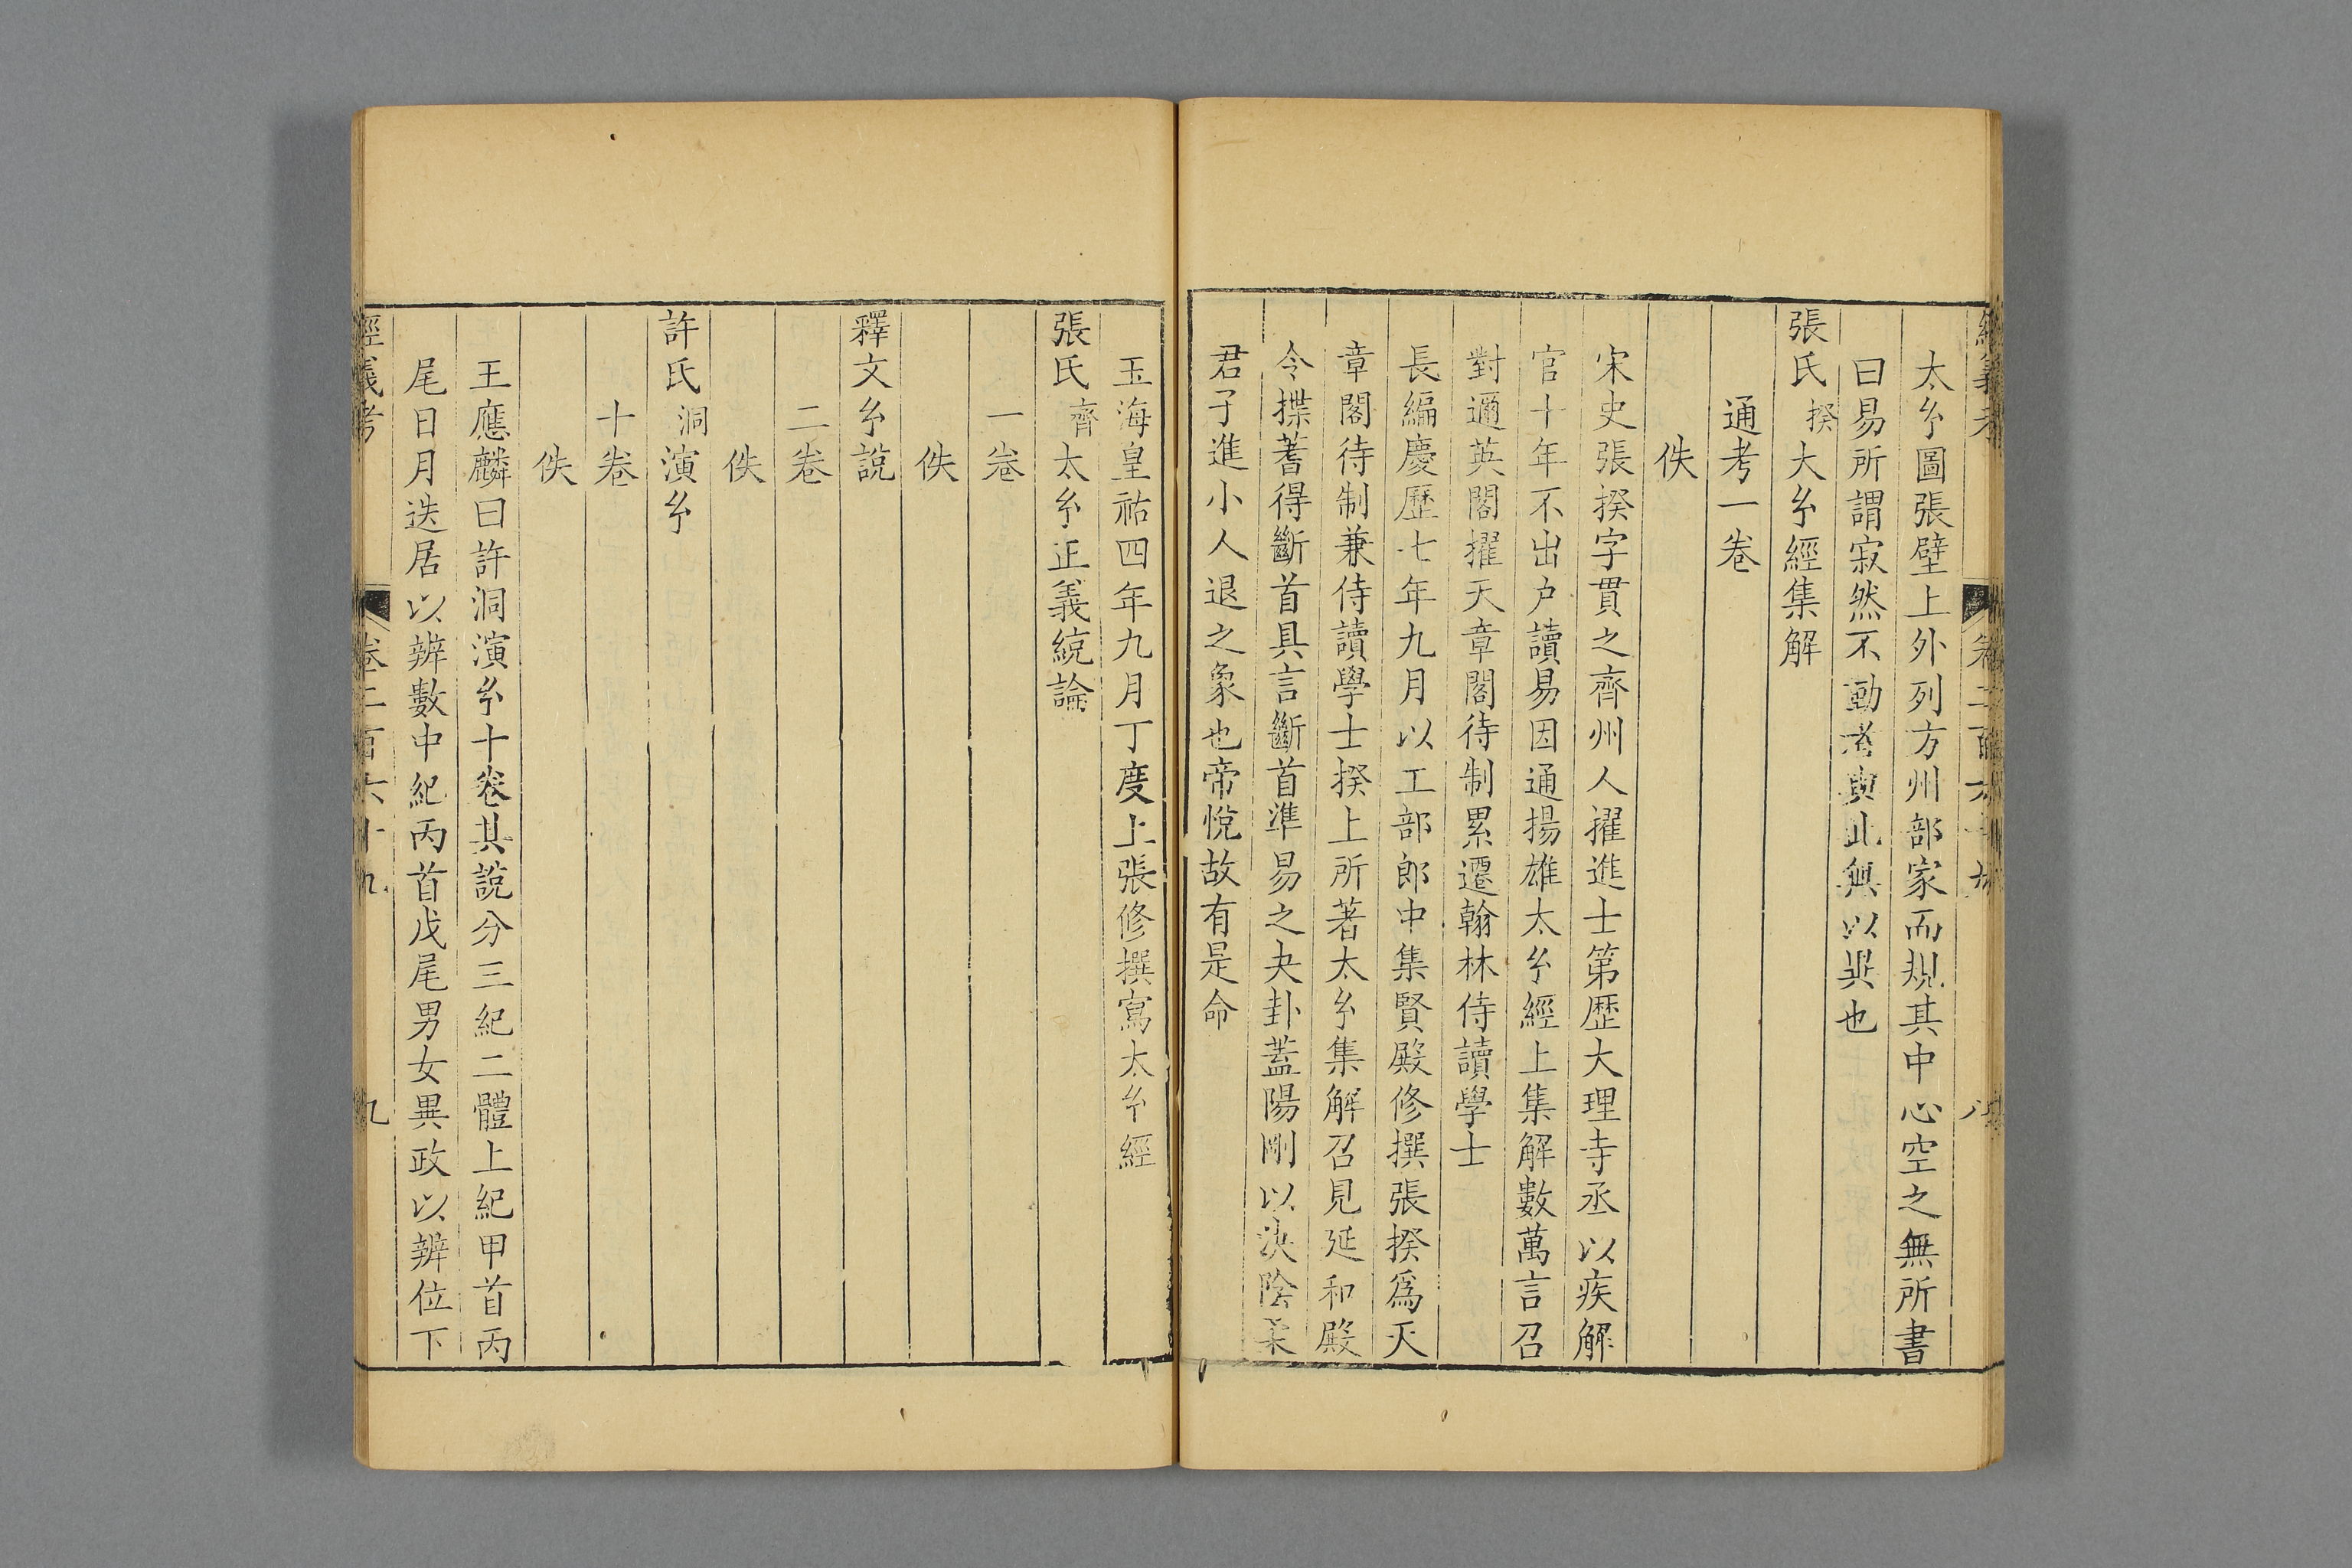 經義考 卷二百六十九 八
太𤣥圖張壁上外列方州部家而規其中心空之無所書
曰易所謂寂然不動者與此無以異也
張氏揆大𤣥經集解
通考一卷
佚
宋史張揆字貫之齊州人擢進士第歷大理寺丞以疾解
官十年不出户讀易因通揚雄太𤣥經上集解數萬言召
對邇英閣擢天章閣待制累遷翰林侍讀學士
長編慶歷七年九月以工部郎中集賢殿修撰張揆爲天
章閣待制兼侍讀學士揆上所著太𤣥集解召見延和殿
令揲蓍得斷首具言斷首準易之夬卦蓋陽剛以決陰柔
君子進小人退之象也帝悅故有是命
玉海皇祐四年九月丁度上張修撰寫太𤣥經
張氏齊太𤣥正義統論
一卷
佚
釋文𤣥說
二卷
佚
許氏洞演𤣥
十卷
佚
王應麟曰許洞演𤣥十卷其說分三紀二體上紀甲首丙
尾日月迭居以辨數中紀丙首戊尾男女異政以辨位下
經義考 卷二百六十九 九